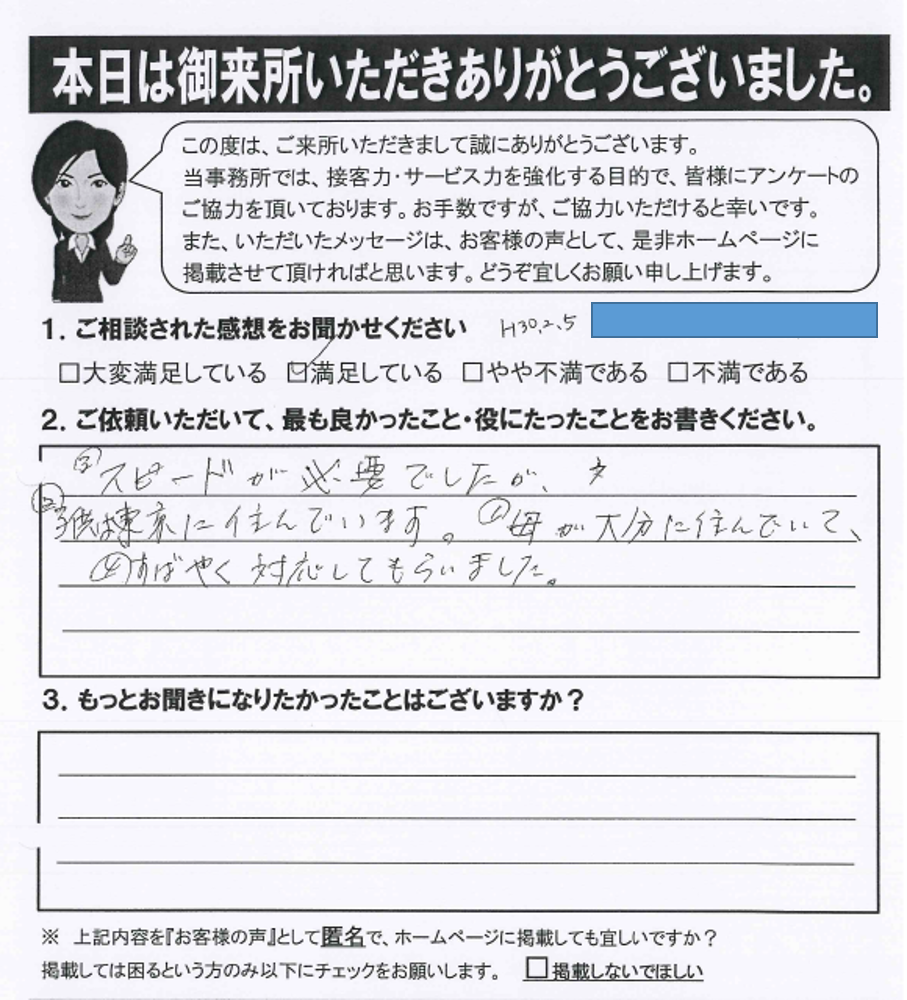 本日は御来所いただきありがとうございました。
この度は、ご来所いただきまして誠にありがとうございます。
当事務所では、接客力・サービス力を強化する目的で、皆様にアンケートの
ご協力を頂いております。お手数ですが、ご協力いただけると幸いです。
また、いただいたメッセージは、お客様の声として、是非ホームページに
掲載させて頂ければと思います。どうぞ宜しくお願い申し上げます。
1. ご相談された感想をお聞かせください H30.2.5
□大変満足している ☑満足している □やや不満である □不満である
2. ご依頼いただいて、最も良かったこと・役にたったことをお書きください。
③スピードが必要でしたが、
②子供は東京に住んでいます。①母が大分に住んでいて、
④すばやく対応してもらいました。
3. もっとお聞きになりたかったことはございますか？
※ 上記内容を『お客様の声』として匿名で、ホームページに掲載しても宜しいですか？
掲載しては困るという方のみ以下にチェックをお願いします。 □掲載しないでほしい